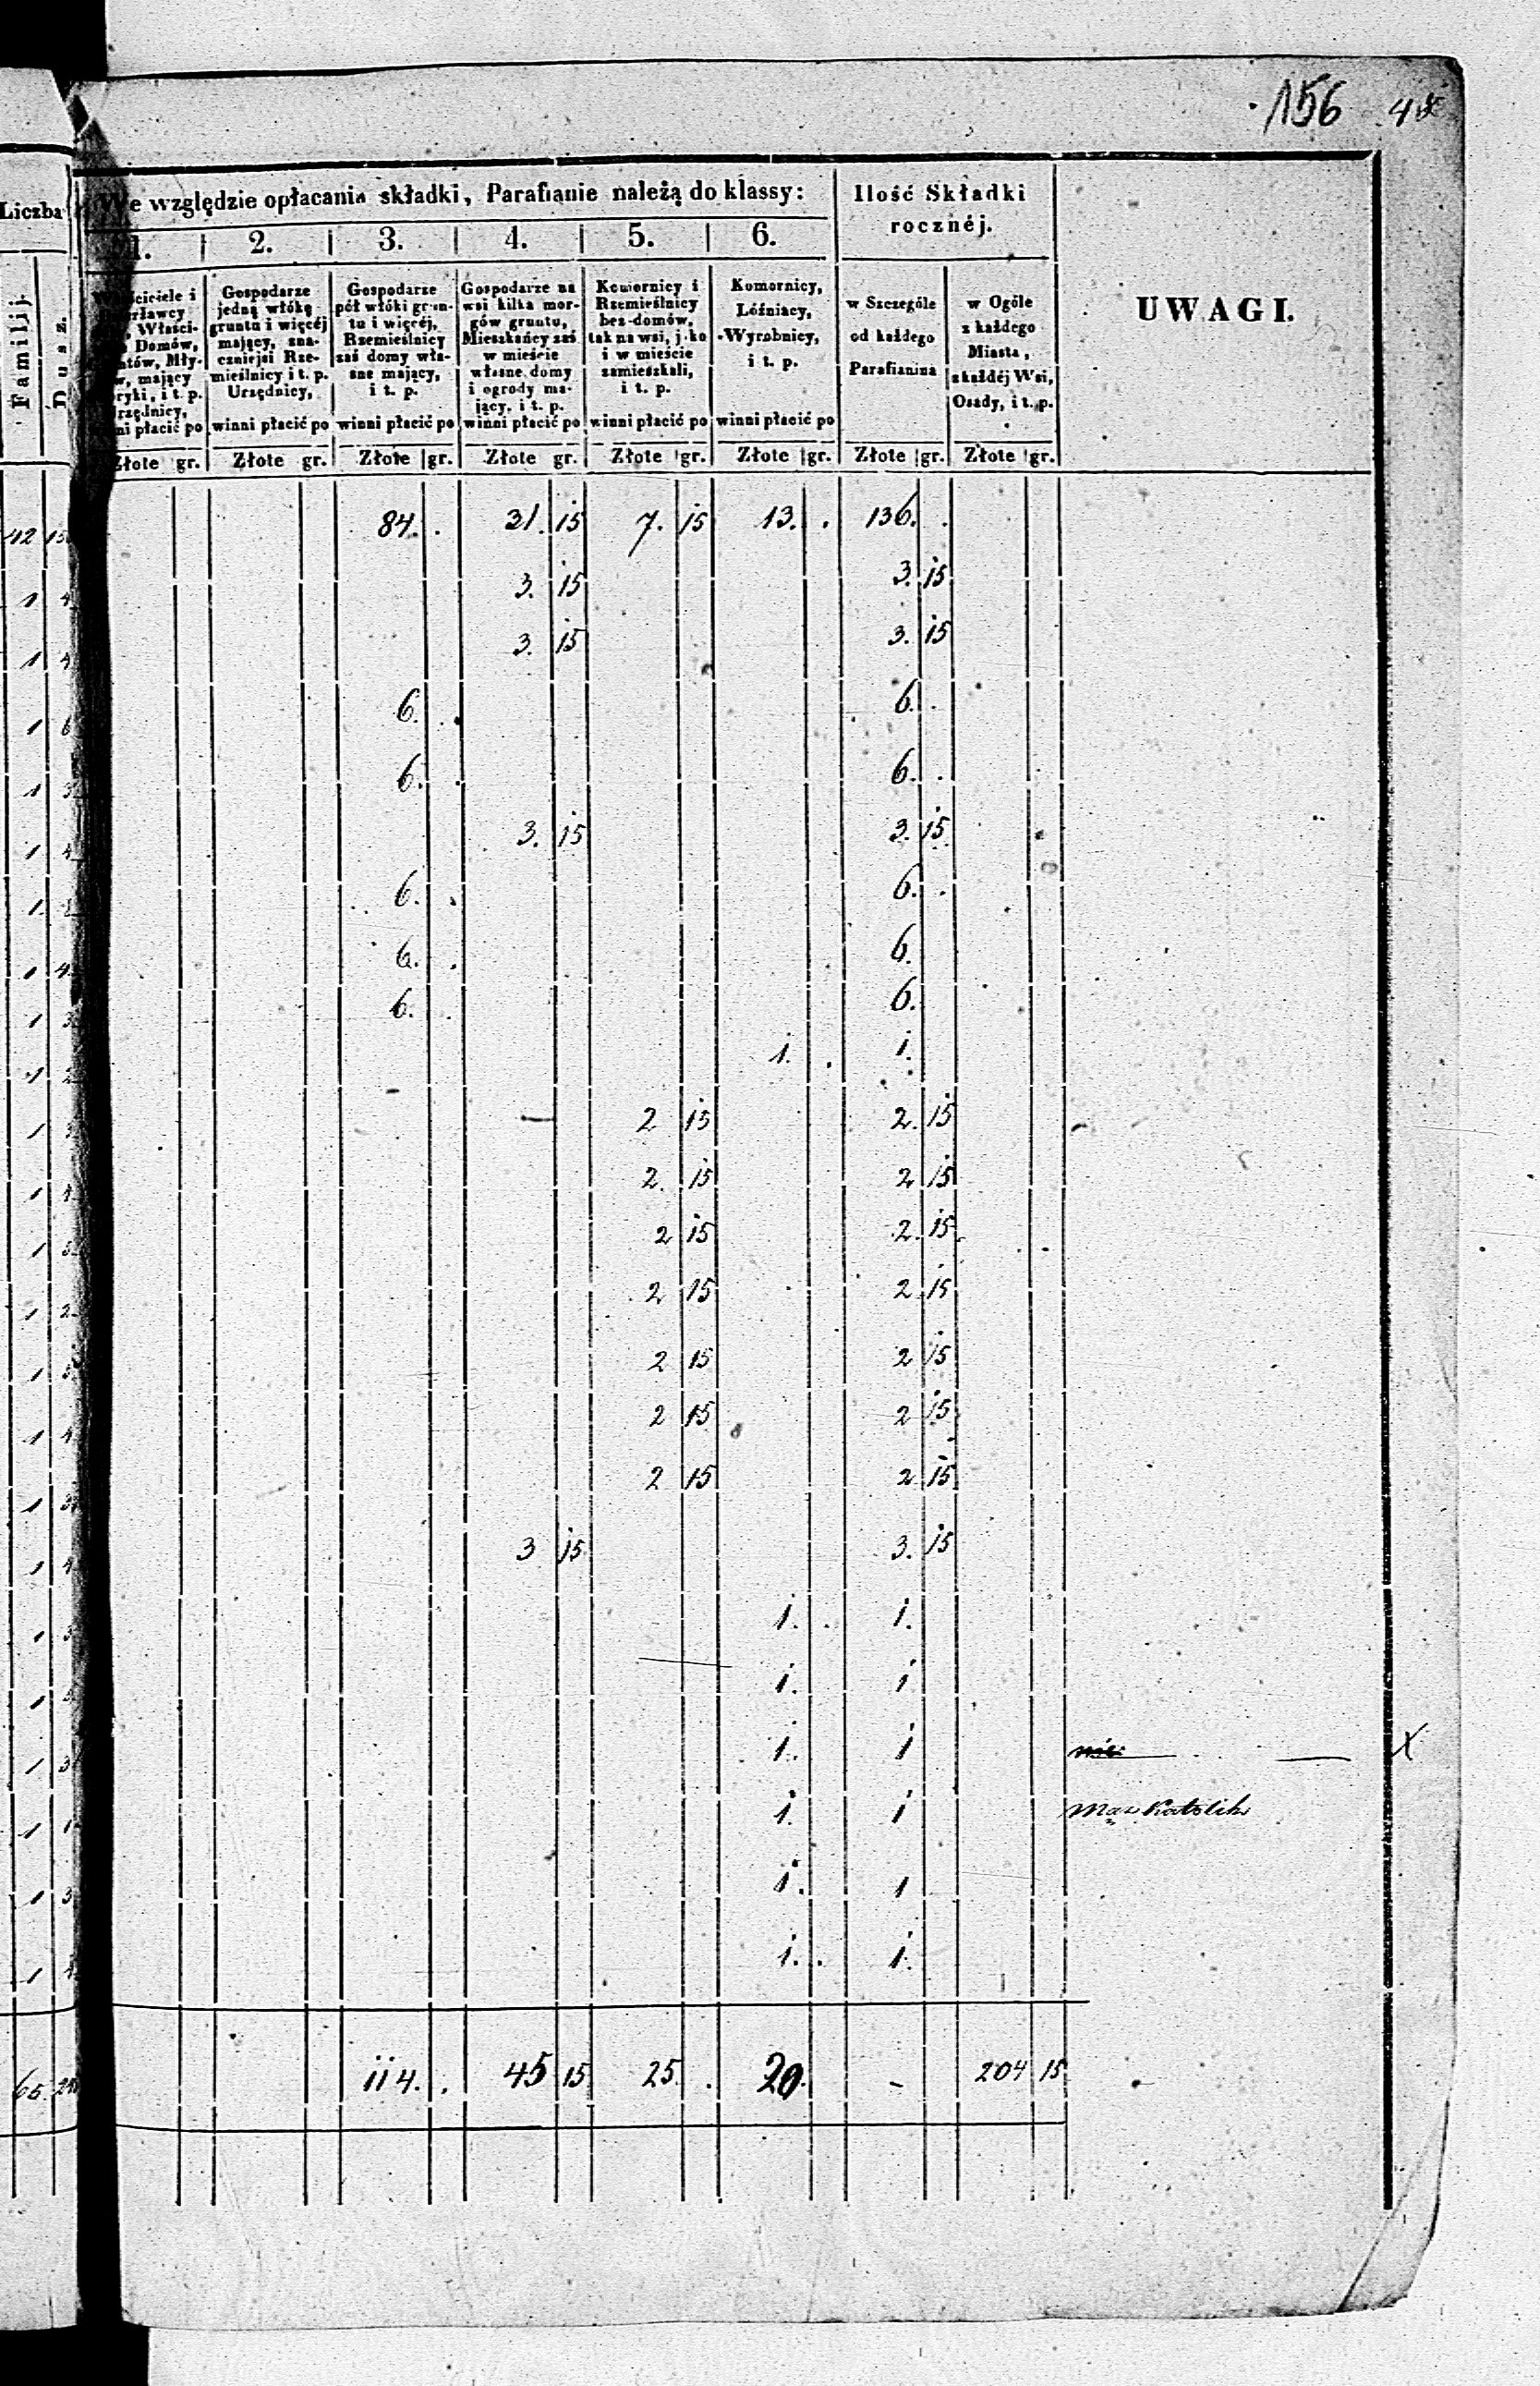 156
Liczba We względzie opłacania składki, Parafianie należą do klassy: Ilość Składki rocznéj. UWAGI.
1. 2. 3. 4. 5. 6.
Familij. Dusz.
Gospodarze jedną włókę gruntu i więcéj mający, znaczniejsi Rzemieślnicy i t. p. Urzędnicy, winni płacić po
Gospodarze pół włóki gruntu i więcéj, Rzemieślnicy zaś domy własne mający, i t. p. winni płacić po
Gospodarze na wsi kilka morgów gruntu, Mieszkańcy zaś w mieście własne domy i ogrody mający, i t. p. winni płacić po
Komornicy i Rzemieślnicy bez-domów, tak na wsi, jako i w mieście zamieszkali, i t. p. winni płacić po
Komornicy, Lóźniacy, Wyrobnicy, i t. p. winni płacić po
w Szczególe od każdego Parafianina
w Ogóle z każdego Miasta, z każdéj Wsi, Osady, i t. p.
Złote gr. Złote gr. Złote gr. Złote gr. Złote gr. Złote gr. Złote gr. Złote gr.
42 84. . 31. 15 7. 15 13. . 136. .
1 4 3. 15 3. 15
1 4 3. 15 3. 15
1 6 6. . 6. .
1 3 6. . 6. .
1 4 3. 15 3. 15
1 6. . 6. .
1 4 6. . 6.
1 3 6. . 6.
1 2 1. . 1.
1 3 2 15 2. 15
1 4 2. 15 2 15
1 2 15 2. 15
1 2 2 15 2 15
1 2 15 2 15
1 4 2 15 2 15
1 3 2 15 2 15
1 4 3 15 3. 15
1 3 1. . 1.
1 1. 1
1 3 1. 1
1 1 1. 1 Mąz Katolik
1 3 1. 1
1 1. . 1.
65 114. . 45 15 25. . 20. - 204 15